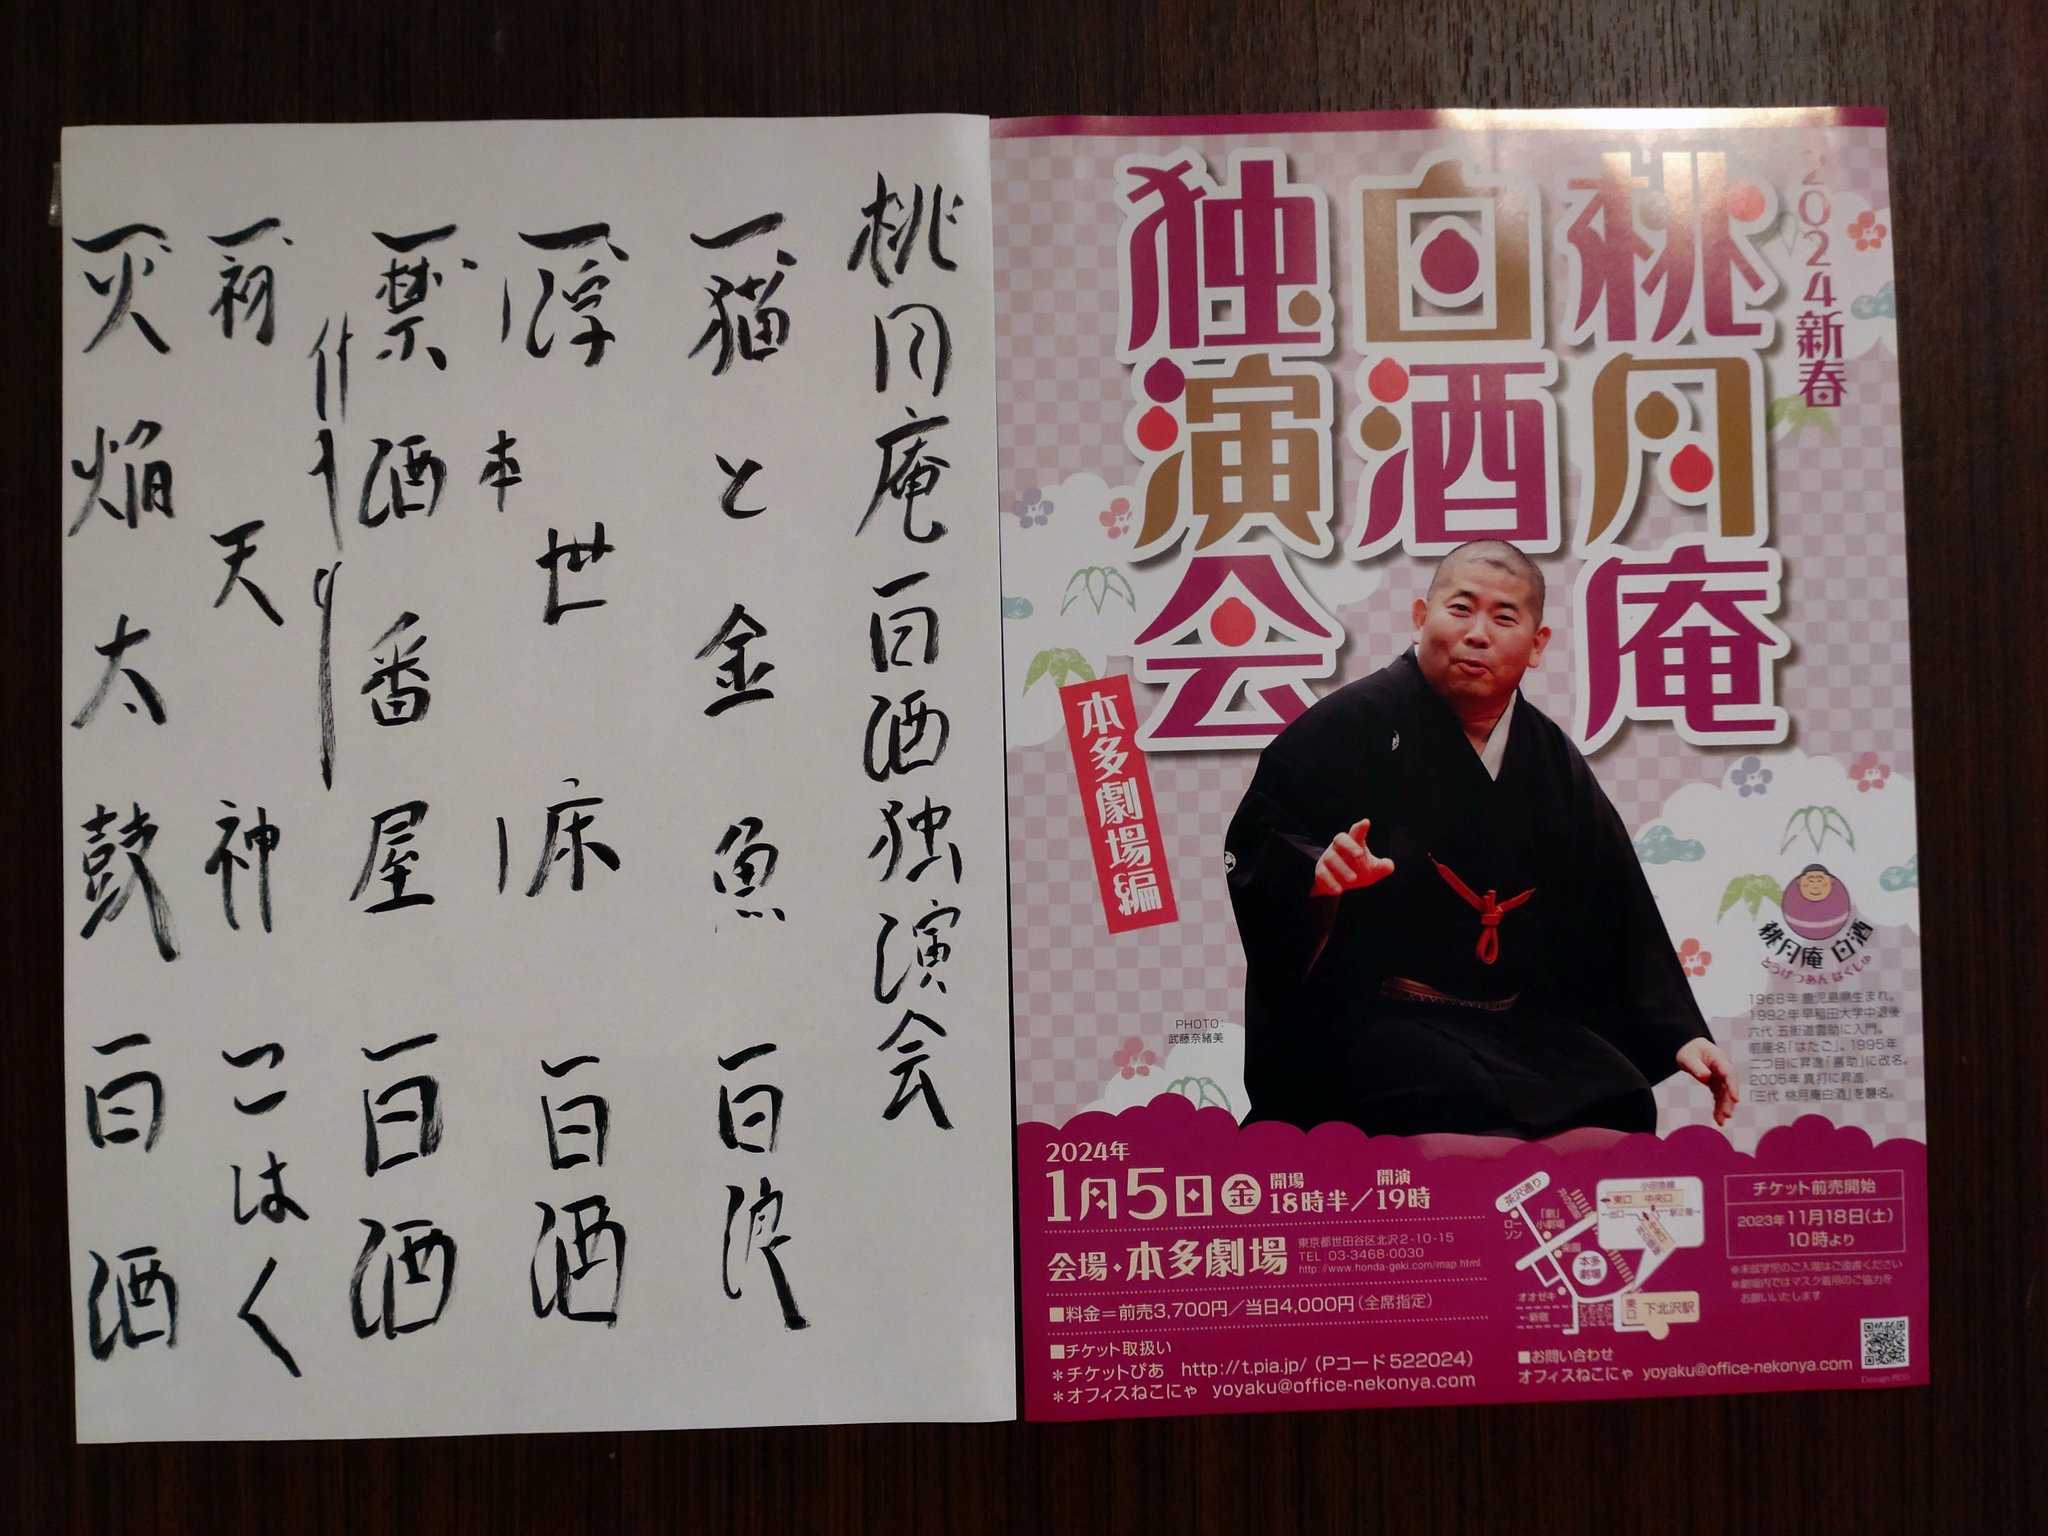 桃月庵白酒独演会
一、猫と金魚 白浪
一、浮世床 本 白酒
一、禁酒番屋 白酒
仲入り
一、初天神 こはく
一、火焔太鼓 白酒
2024新春
桃月庵
白酒
独演会
本多劇場編
桃月庵 白酒
とうげつあん はくしゅ
1968年 鹿児島県生まれ。
1992年 早稲田大学中退後
六代 五街道雲助に入門。
前座名「はたご」。1995年
二つ目に昇進「喜助」に改名。
2005年 真打に昇進、
「三代 桃月庵白酒」を襲名。
PHOTO:
武藤奈緒美
2024年
1月5日(金) 開場18時半/開演19時
会場・本多劇場
東京都世田谷区北沢2-10-15
TEL 03-3468-0030
http://www.honda-geki.com/map.html
■料金=前売3,700円/当日4,000円(全席指定)
■チケット取扱い
＊チケットぴあ http://t.pia.jp/ (Pコード522024)
＊オフィスねこにゃ yoyaku@office-nekonya.com
茶沢通り
ローソン
「劇」小劇場
本多劇場
オオゼキ
←新宿
小田急線
東口
中央口
東口
下北沢駅
チケット前売開始
2023年11月18日(土)
10時より
※未就学児のご入場はご遠慮ください
※劇場内ではマスク着用のご協力を
お願いいたします
■お問い合わせ
オフィスねこにゃ yoyaku@office-nekonya.com